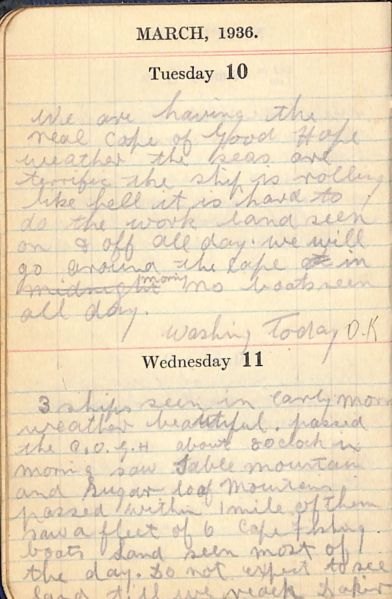 MARCH, 1936.
Tuesday 10
We are having the
real Cape of Good Hope
weather the seas are
terrific the ship is rolling
like hell it is hard to
do the work land seen
on & off all day. we will
go around the Cape in
midnight morn no boats seen
all day.
Washing Today O.K
Wednesday 11
3 ships seen in Early morn
weather beautiful. passed
the C.O.G.H about 8 oclock in
morning saw Table mountain
and Sugar loaf Mountens
passed within 1 mile of them
saw a fleet of 6 Cape fishing
boats land seen most of
the day. Do not expect to see
land till we reach Dakir